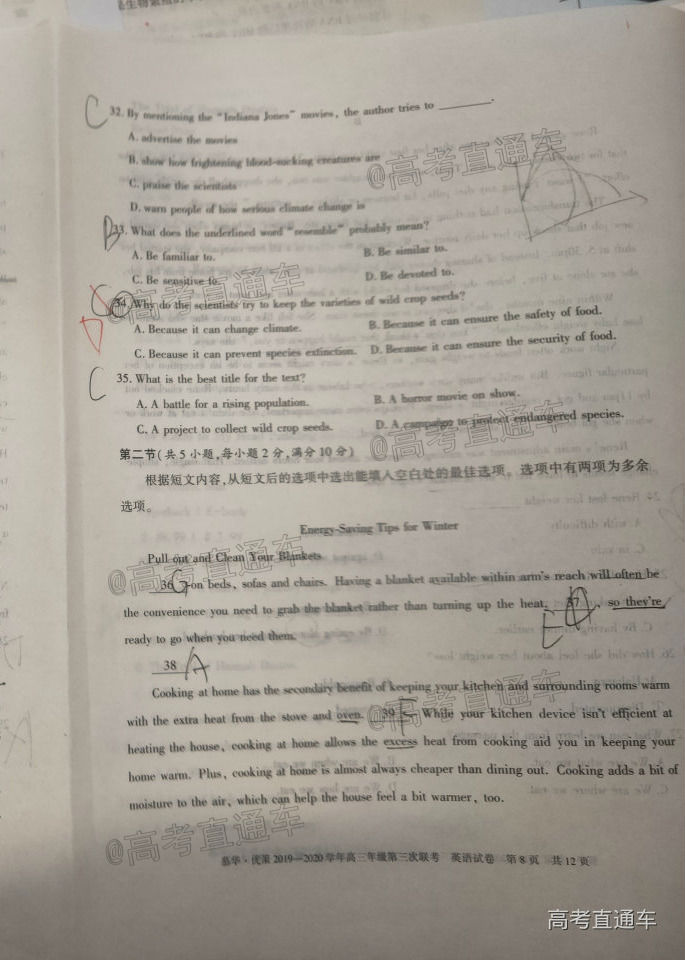 32. By mentioning the "Indiana Jones" movies, the author tries to ________.
A. advertise the movies
B. show how frightening blood-sucking creatures are
C. praise the scientists
D. warn people of how serious climate change is
33. What does the underlined word "resemble" probably mean?
A. Be familiar to. B. Be similar to.
C. Be sensitive to. D. Be devoted to.
34. Why do the scientists try to keep the varieties of wild crop seeds?
A. Because it can change climate. B. Because it can ensure the safety of food.
C. Because it can prevent species extinction. D. Because it can ensure the security of food.
35. What is the best title for the text?
A. A battle for a rising population. B. A horror movie on show.
C. A project to collect wild crop seeds. D. A campaign to protect endangered species.
第二节(共5小题,每小题2分,满分10分)
根据短文内容,从短文后的选项中选出能填入空白处的最佳选项。选项中有两项为多余
选项。
Energy-Saving Tips for Winter
Pull out and Clean Your Blankets
36 G on beds, sofas and chairs. Having a blanket available within arm's reach will often be
the convenience you need to grab the blanket rather than turning up the heat. 37, so they're
E
ready to go when you need them.
38 A
Cooking at home has the secondary benefit of keeping your kitchen and surrounding rooms warm
with the extra heat from the stove and oven. 39 While your kitchen device isn't efficient at
heating the house, cooking at home allows the excess heat from cooking aid you in keeping your
home warm. Plus, cooking at home is almost always cheaper than dining out. Cooking adds a bit of
moisture to the air, which can help the house feel a bit warmer, too.
慕华·优策2019—2020学年高三年级第三次联考 英语试卷 第8页 共12页
C
C
D
C
@高考直通车
@高考直通车
@高考直通车
@高考直通车
@高考直通车
高考直通车